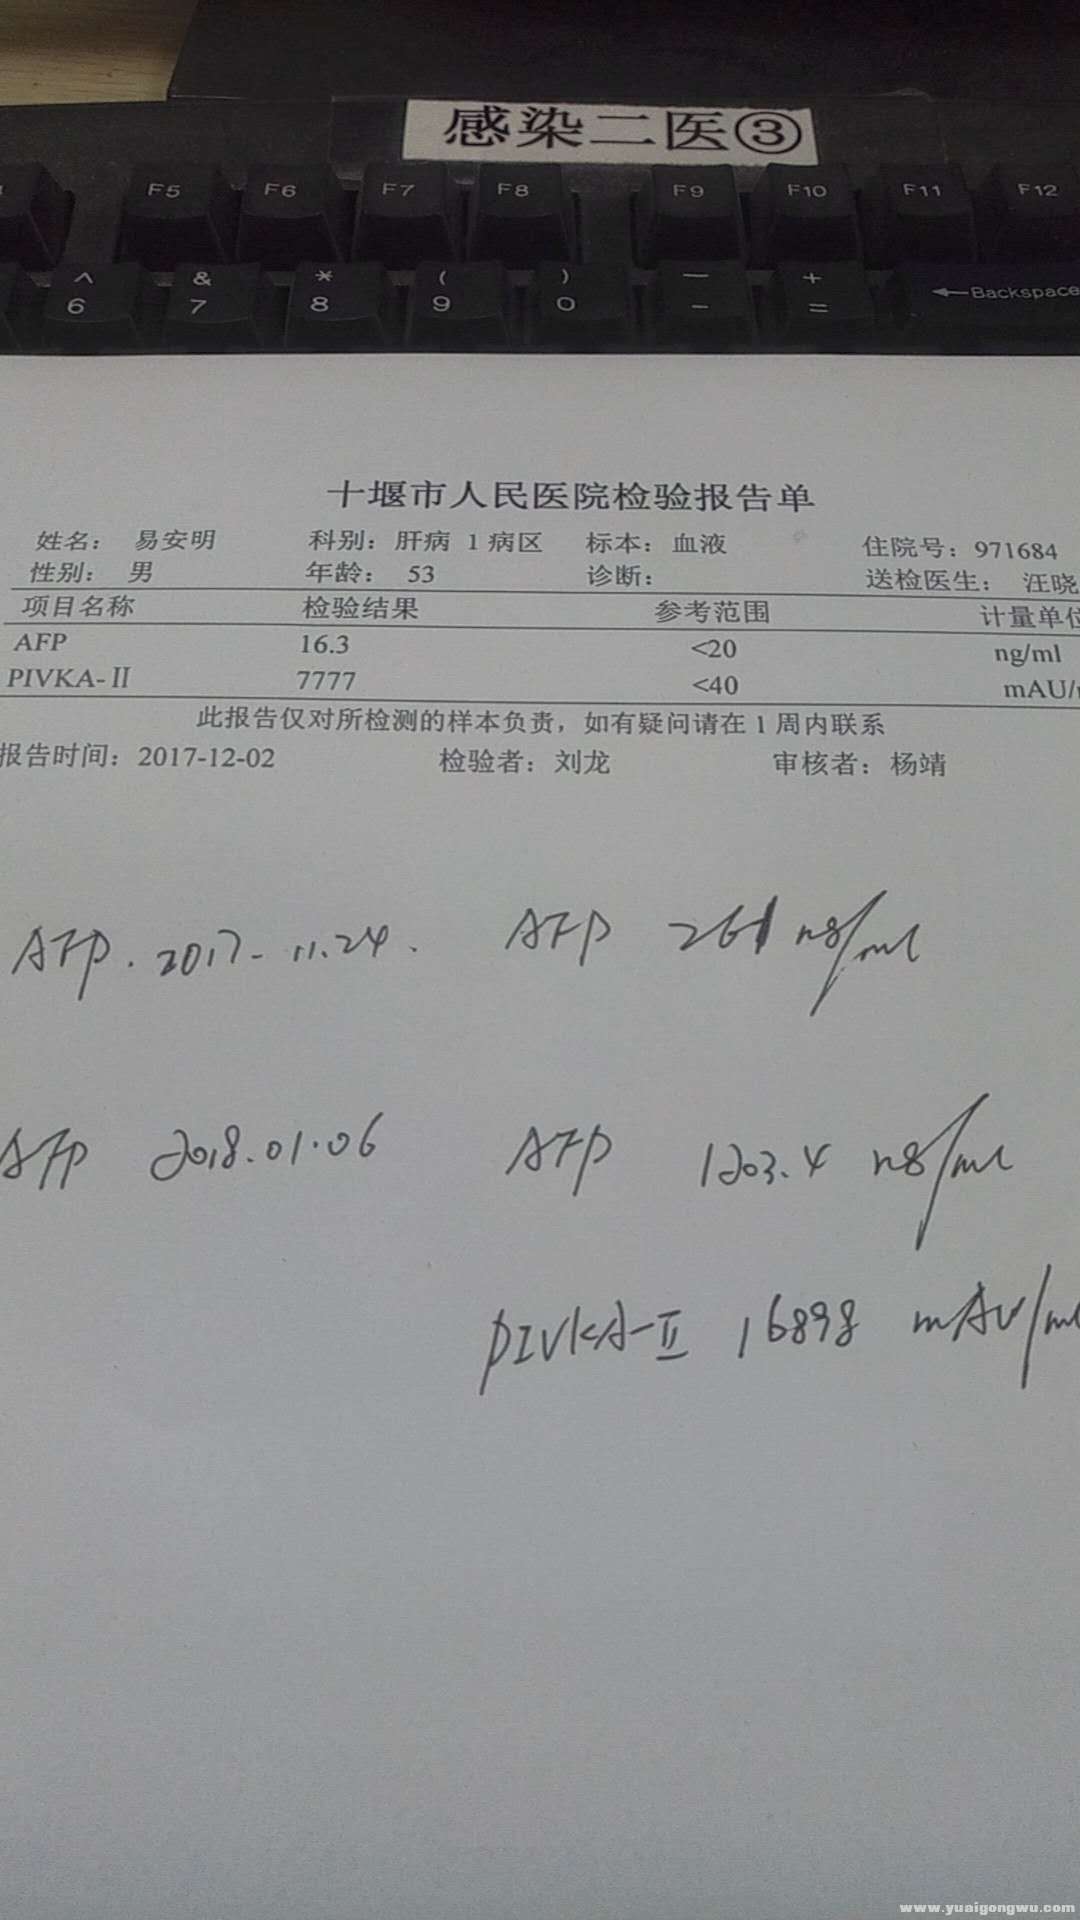 感染二医③
F5 F6 F7 F8 F9 F10 F11 F12
^ & * ( ) — +
6 7 8 9 0 - = ←Backspace
十堰市人民医院检验报告单
姓名： 易安明 科别：肝病 1 病区 标本：血液 住院号：971684
性别： 男 年龄： 53 诊断： 送检医生： 汪晓
项目名称 检验结果 参考范围 计量单位
AFP 16.3 <20 ng/ml
PIVKA-Ⅱ 7777 <40 mAU/
此报告仅对所检测的样本负责，如有疑问请在 1 周内联系
报告时间：2017-12-02 检验者：刘龙 审核者：杨靖
AFP . 2017-11.24. AFP 261 ng/ml
AFP 2018.01.06 AFP 1203.4 ng/ml
PIVKA-Ⅱ 16898 mAU/ml
www.yuaigongwu.com